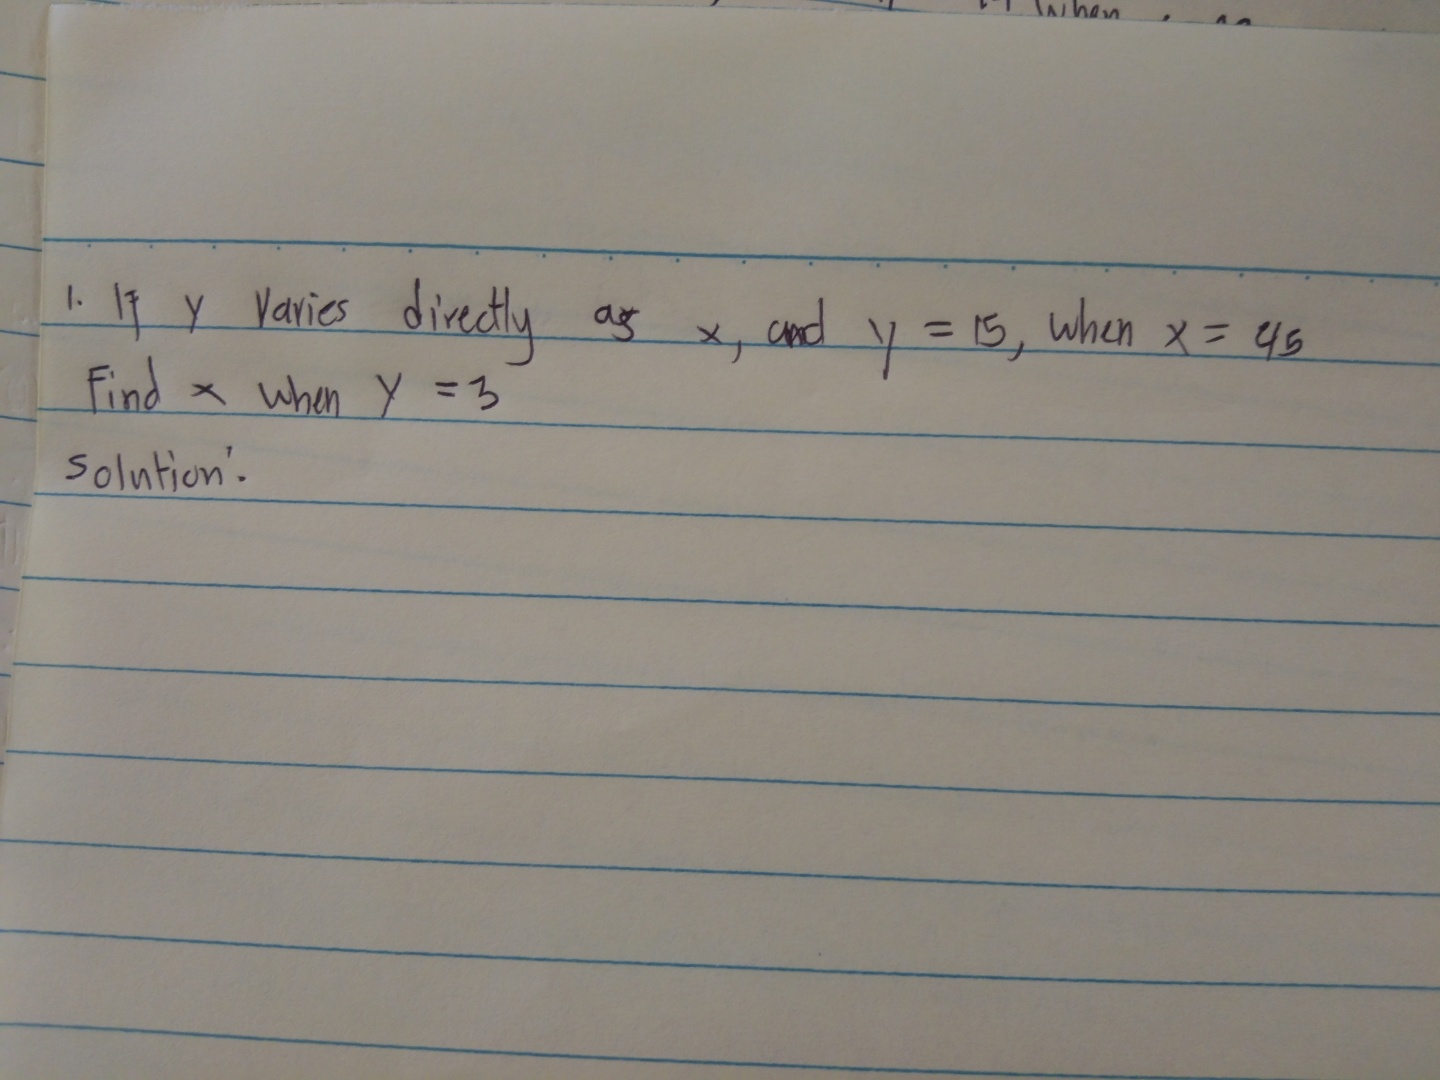 When
1. If y varies directly as x, and y = 15, when x = 45
Find x when y = 3
Solution: